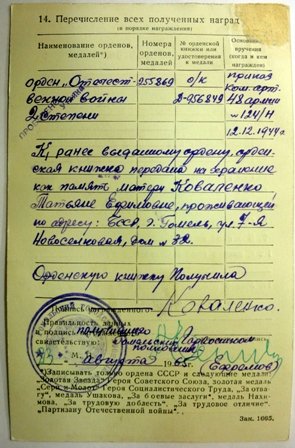 14. Перечисление всех полученных наград
(в порядке награждения)
Наименование орденов, медалей*)
Номера орденов, медалей
№ орденской книжки или удостоверения к медали
Основание вручения (когда и кем награжден)
орден „Отечест- 255869 о/к приказ
венной войны Д-956849 ком. арт.
2 степени 48 армии
№ 124/Н
12.12.1944 г.
К ранее выданному ордену, орден-
ская книжка передана на хранение
как память матери Коваленко
Татьяне Ефимовне, проживающей
по адресу: БССР, г. Гомель, ул. 7-я
Новоселковая, дом № 32.
Орденскую книжку Получила
Коваленко.
Правильность данных
и подпись получившего
свидетельствую: Гомельский Горвоенком
полковник
августа 1965 г.
*) Записывать только ордена СССР и следующие медали:
"Золотая Звезда" Героя Советского Союза, золотая медаль
"Серп и Молот" Героя Социалистического Труда, "За отва-
гу", медаль Ушакова, "За боевые заслуги", медаль Нахи-
мова, "За трудовую доблесть", "За трудовое отличие",
"Партизану Отечественной войны".
Зак. 1665.